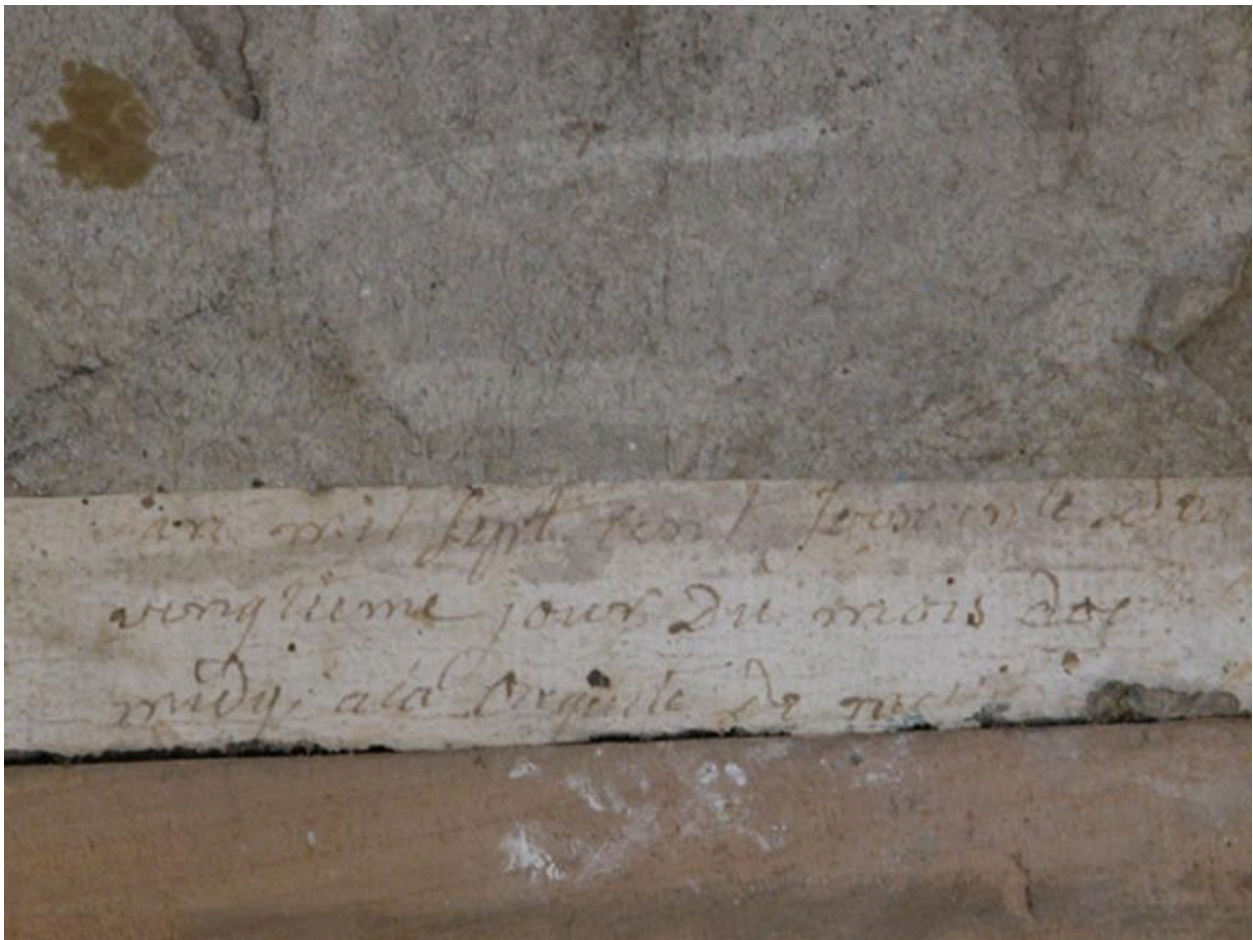 an mil sept cent soixante &
vingtieme jour Du mois
midy, ala Requete de